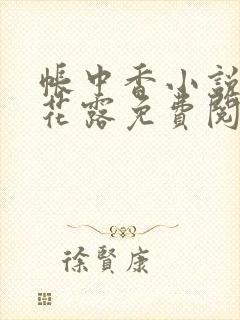 帳中香小說
花露免費閱
徐賢康